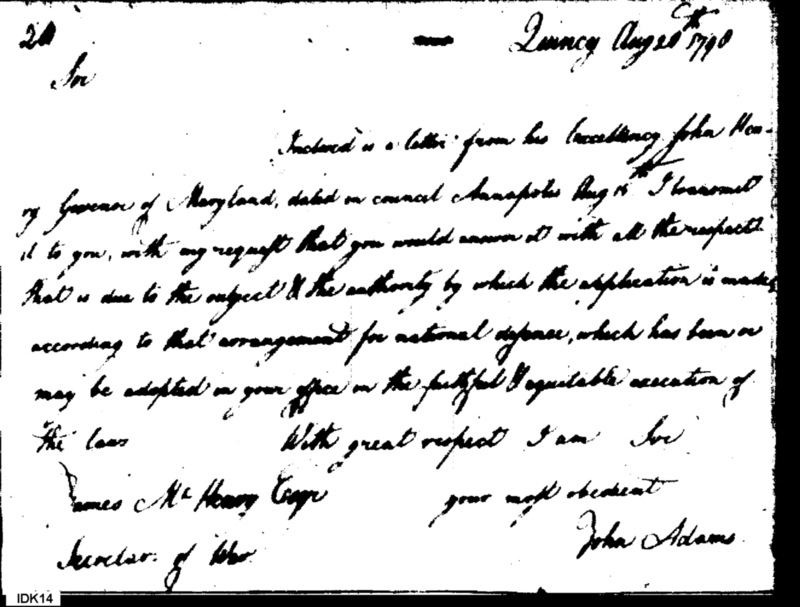 Quincy Aug 20th 1798
Sir
Inclosed is a letter from his Excellency John Hen-
ry Govenor of Maryland, dated in council Annapolis Aug 15th I transmit
it to you, with my request that you would answer it with all the respect
that is due to the subject & the authority by which the application is made,
according to that arrangement for national defence, which has been or
may be adopted in your office in the faithful & equitable execution of
the laws With great respect I am Sir
James Mc Henry Esqr your most obedient
Secretary of War John Adams
IDK14